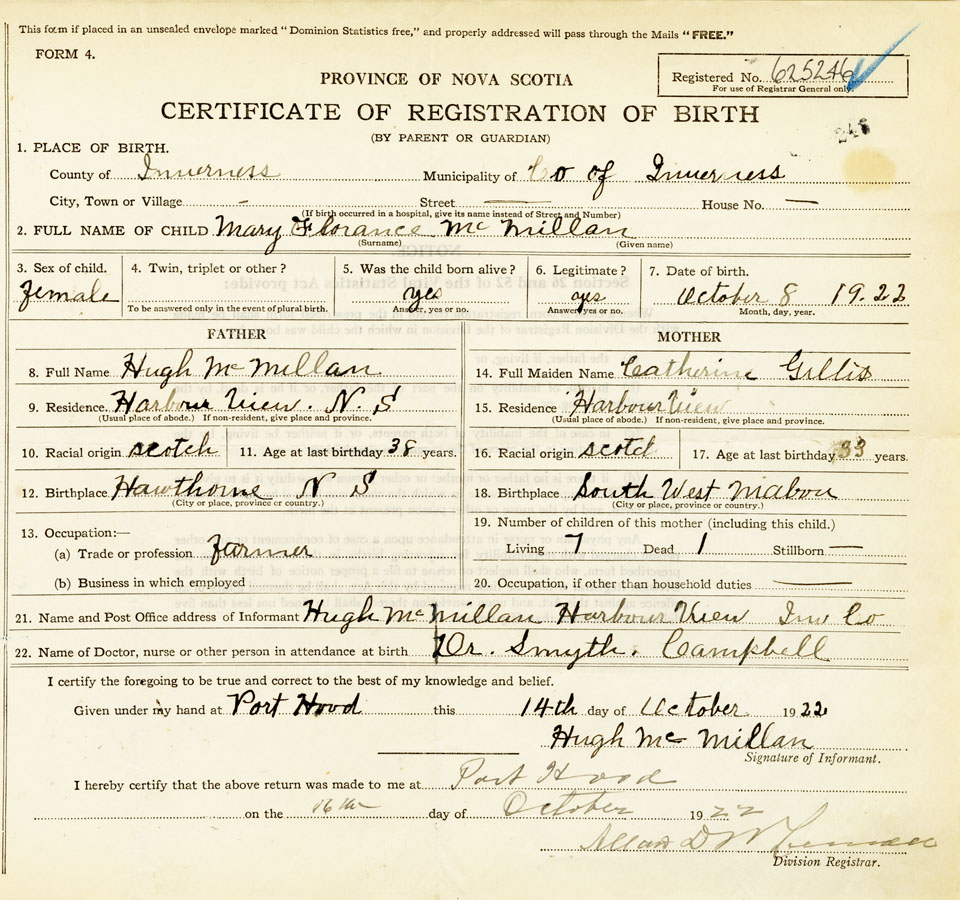 This form if placed in an unsealed envelope marked "Dominion Statistics free," and properly addressed will pass through the Mails "FREE."
FORM 4.
Registered No. 625246
For use of Registrar General only.
PROVINCE OF NOVA SCOTIA
CERTIFICATE OF REGISTRATION OF BIRTH
(BY PARENT OR GUARDIAN)
246
1. PLACE OF BIRTH.
County of Inverness Municipality of Co of Inverness
City, Town or Village - Street — House No. —
(If birth occurred in a hospital, give its name instead of Street and Number)
2. FULL NAME OF CHILD Mary Florance Mc Millan
(Surname) (Given name)
3. Sex of child. 4. Twin, triplet or other? 5. Was the child born alive? 6. Legitimate? 7. Date of birth.
female yes yes October 8 1922
To be answered only in the event of plural birth. Answer, yes or no. Answer, yes or no. Month, day, year.
FATHER MOTHER
8. Full Name Hugh Mc Millan 14. Full Maiden Name Catherine Gillis
9. Residence. Harbour View. N. S 15. Residence Harbour View
(Usual place of abode.) If non-resident, give place and province. (Usual place of abode.) If non-resident, give place and province.
10. Racial origin scotch 11. Age at last birthday 38 years. 16. Racial origin scotch 17. Age at last birthday 33 years.
12. Birthplace Hawthorne N S 18. Birthplace South West Mabou
(City or place, province or country.) (City or place, province or country.)
13. Occupation:— 19. Number of children of this mother (including this child.)
(a) Trade or profession farmer Living 7 Dead 1 Stillborn —
(b) Business in which employed 20. Occupation, if other than household duties —
21. Name and Post Office address of Informant Hugh Mc Millan Harbour View Inv Co
22. Name of Doctor, nurse or other person in attendance at birth Dr. Smyth. Campbell
I certify the foregoing to be true and correct to the best of my knowledge and belief.
Given under my hand at Port Hood this 14th day of October 1922
Hugh Mc Millan
Signature of Informant.
I hereby certify that the above return was made to me at Port Hood
on the 16th day of October 1922
Allan D
Division Registrar.